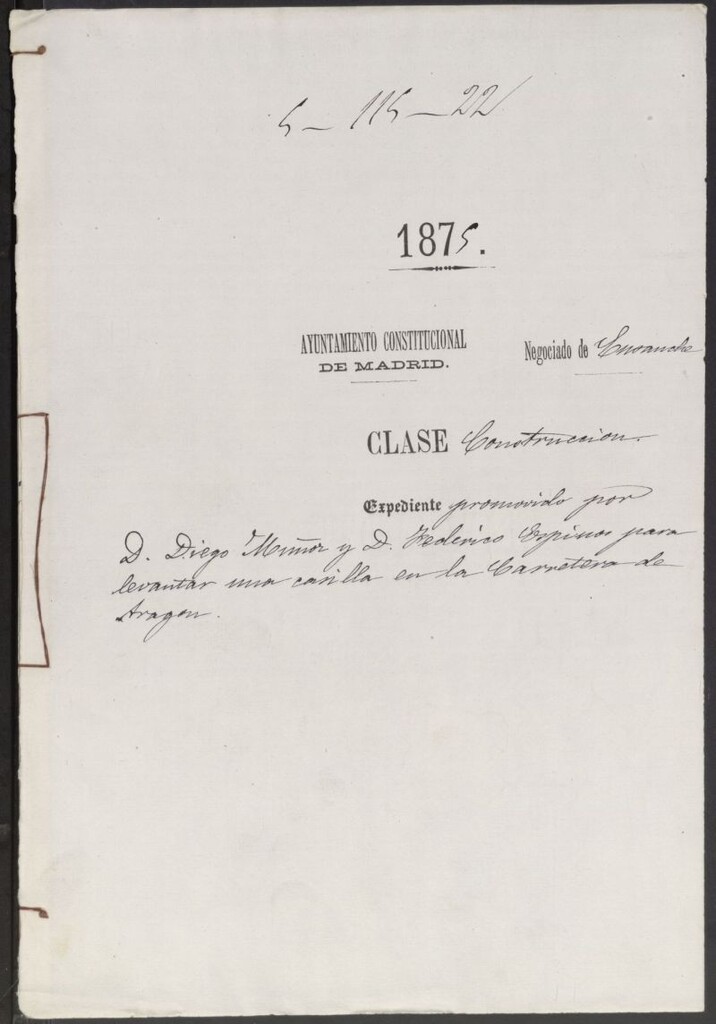 5-115-22
1875.
AYUNTAMIENTO CONSTITUCIONAL
DE MADRID.
Negociado de Ensanche
CLASE Construccion.
Expediente promovido por
D. Diego Muñoz y D. Federico Espinos para
levantar una casilla en la Carretera de
Aragon.